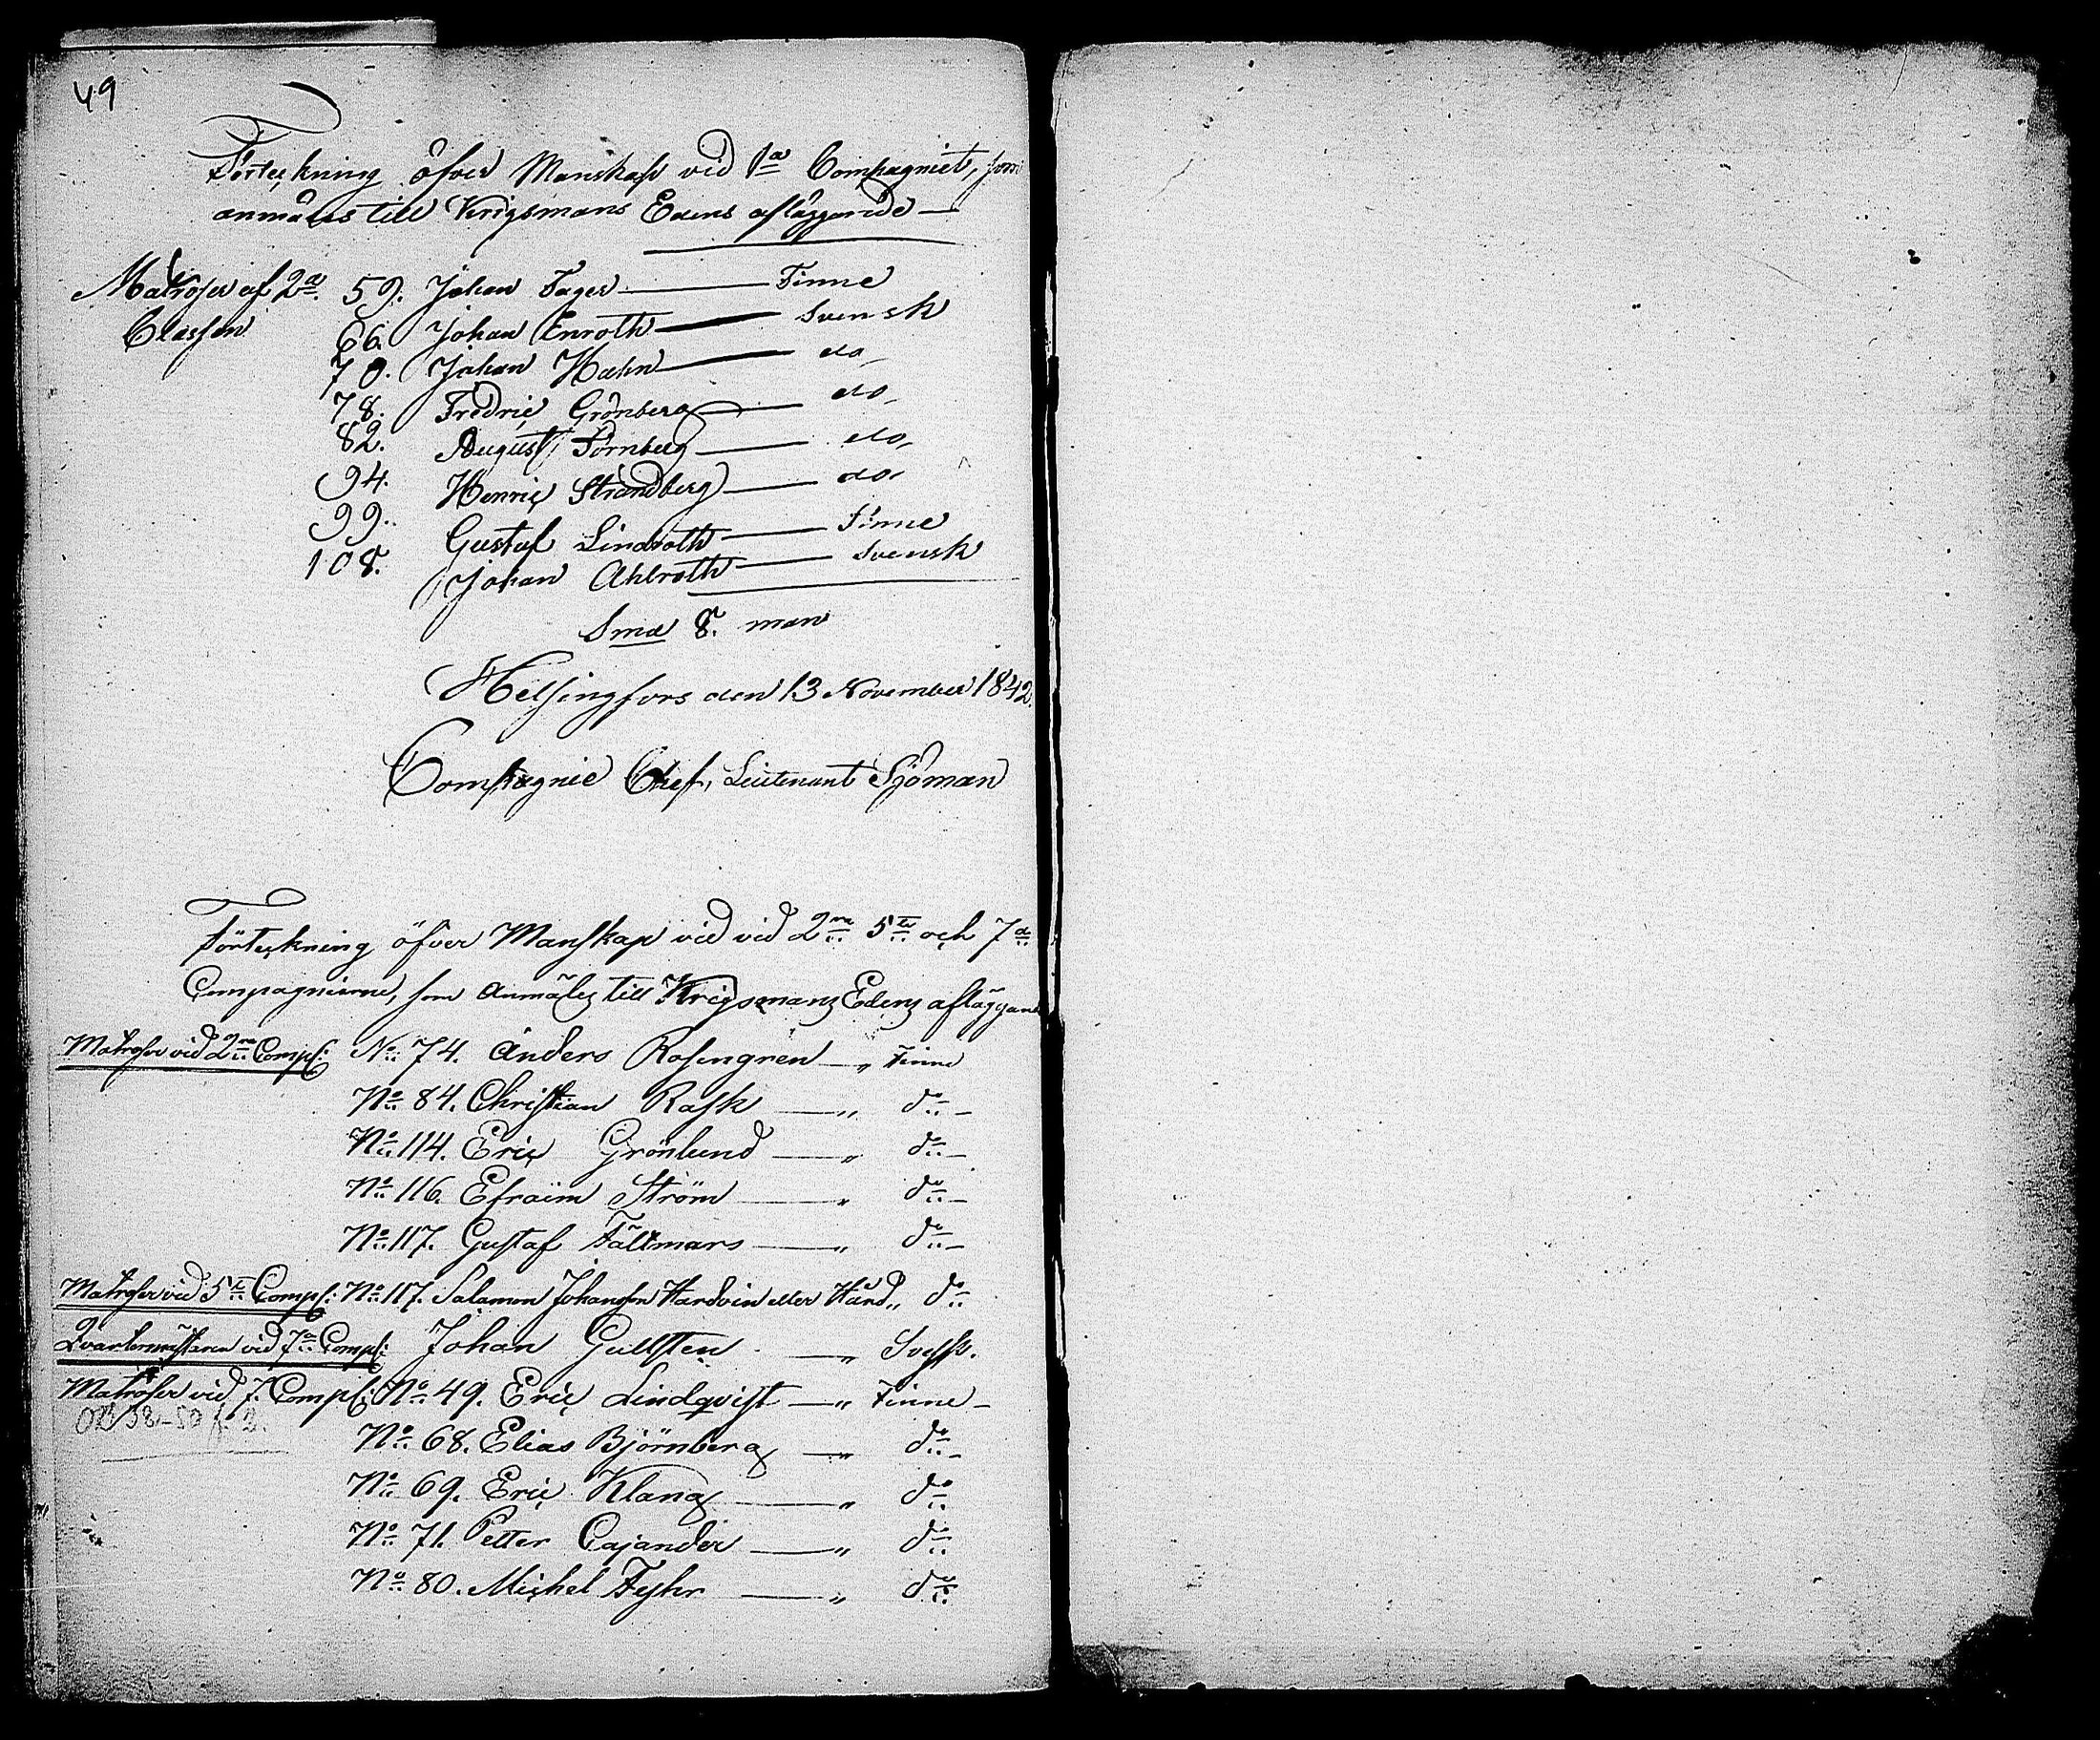 49
Förteckning öfver Manskap vid 1a Compagniet, som
anmäles till Krigsmans Edens afläggande —
Matroser af 2a 59. Johan Fager — Finne
Classen 66. Johan Enroth — Svensk
70. Johan Hahn — do
78. Fredric Grönberg — do
82. August Törnberg — do
94. Henric Strandberg — do
99. Gustaf Lindroth — Finne
108. Johan Ahlroth — Svensk
Sma 8. man
Helsingfors den 13 November 1842.
Compagnie Chef, Leutenant Sjöman
Förteckning öfver Manskap vid vid 2ra 5te och 7a
Compagnierne, som Anmäles till Krigsmans Edens afläggand
Matroser vid 2ra Comp: No 74. Anders Rosengren — " Finne
No 84. Christian Rask — " do —
No 114. Eric Grönlund — " do —
No 116. Efraim Ström — " do —
No 117. Gustaf Fältmars — " do —
Matroser vid 5te Comp: No 117. Salomon Johansson Hardvin eller Hård " do
Qvartermästaren vid 7a Comp: Johan Gullsten — " Svensk.
Matroser vid 7. Comp: No 49. Eric Lindqvist — " Finne —
No 68. Elias Björnberg — " do —
No 69. Eric Klang — " do
No 71. Petter Cajander — " do
No 80. Michel Fyhr — " do